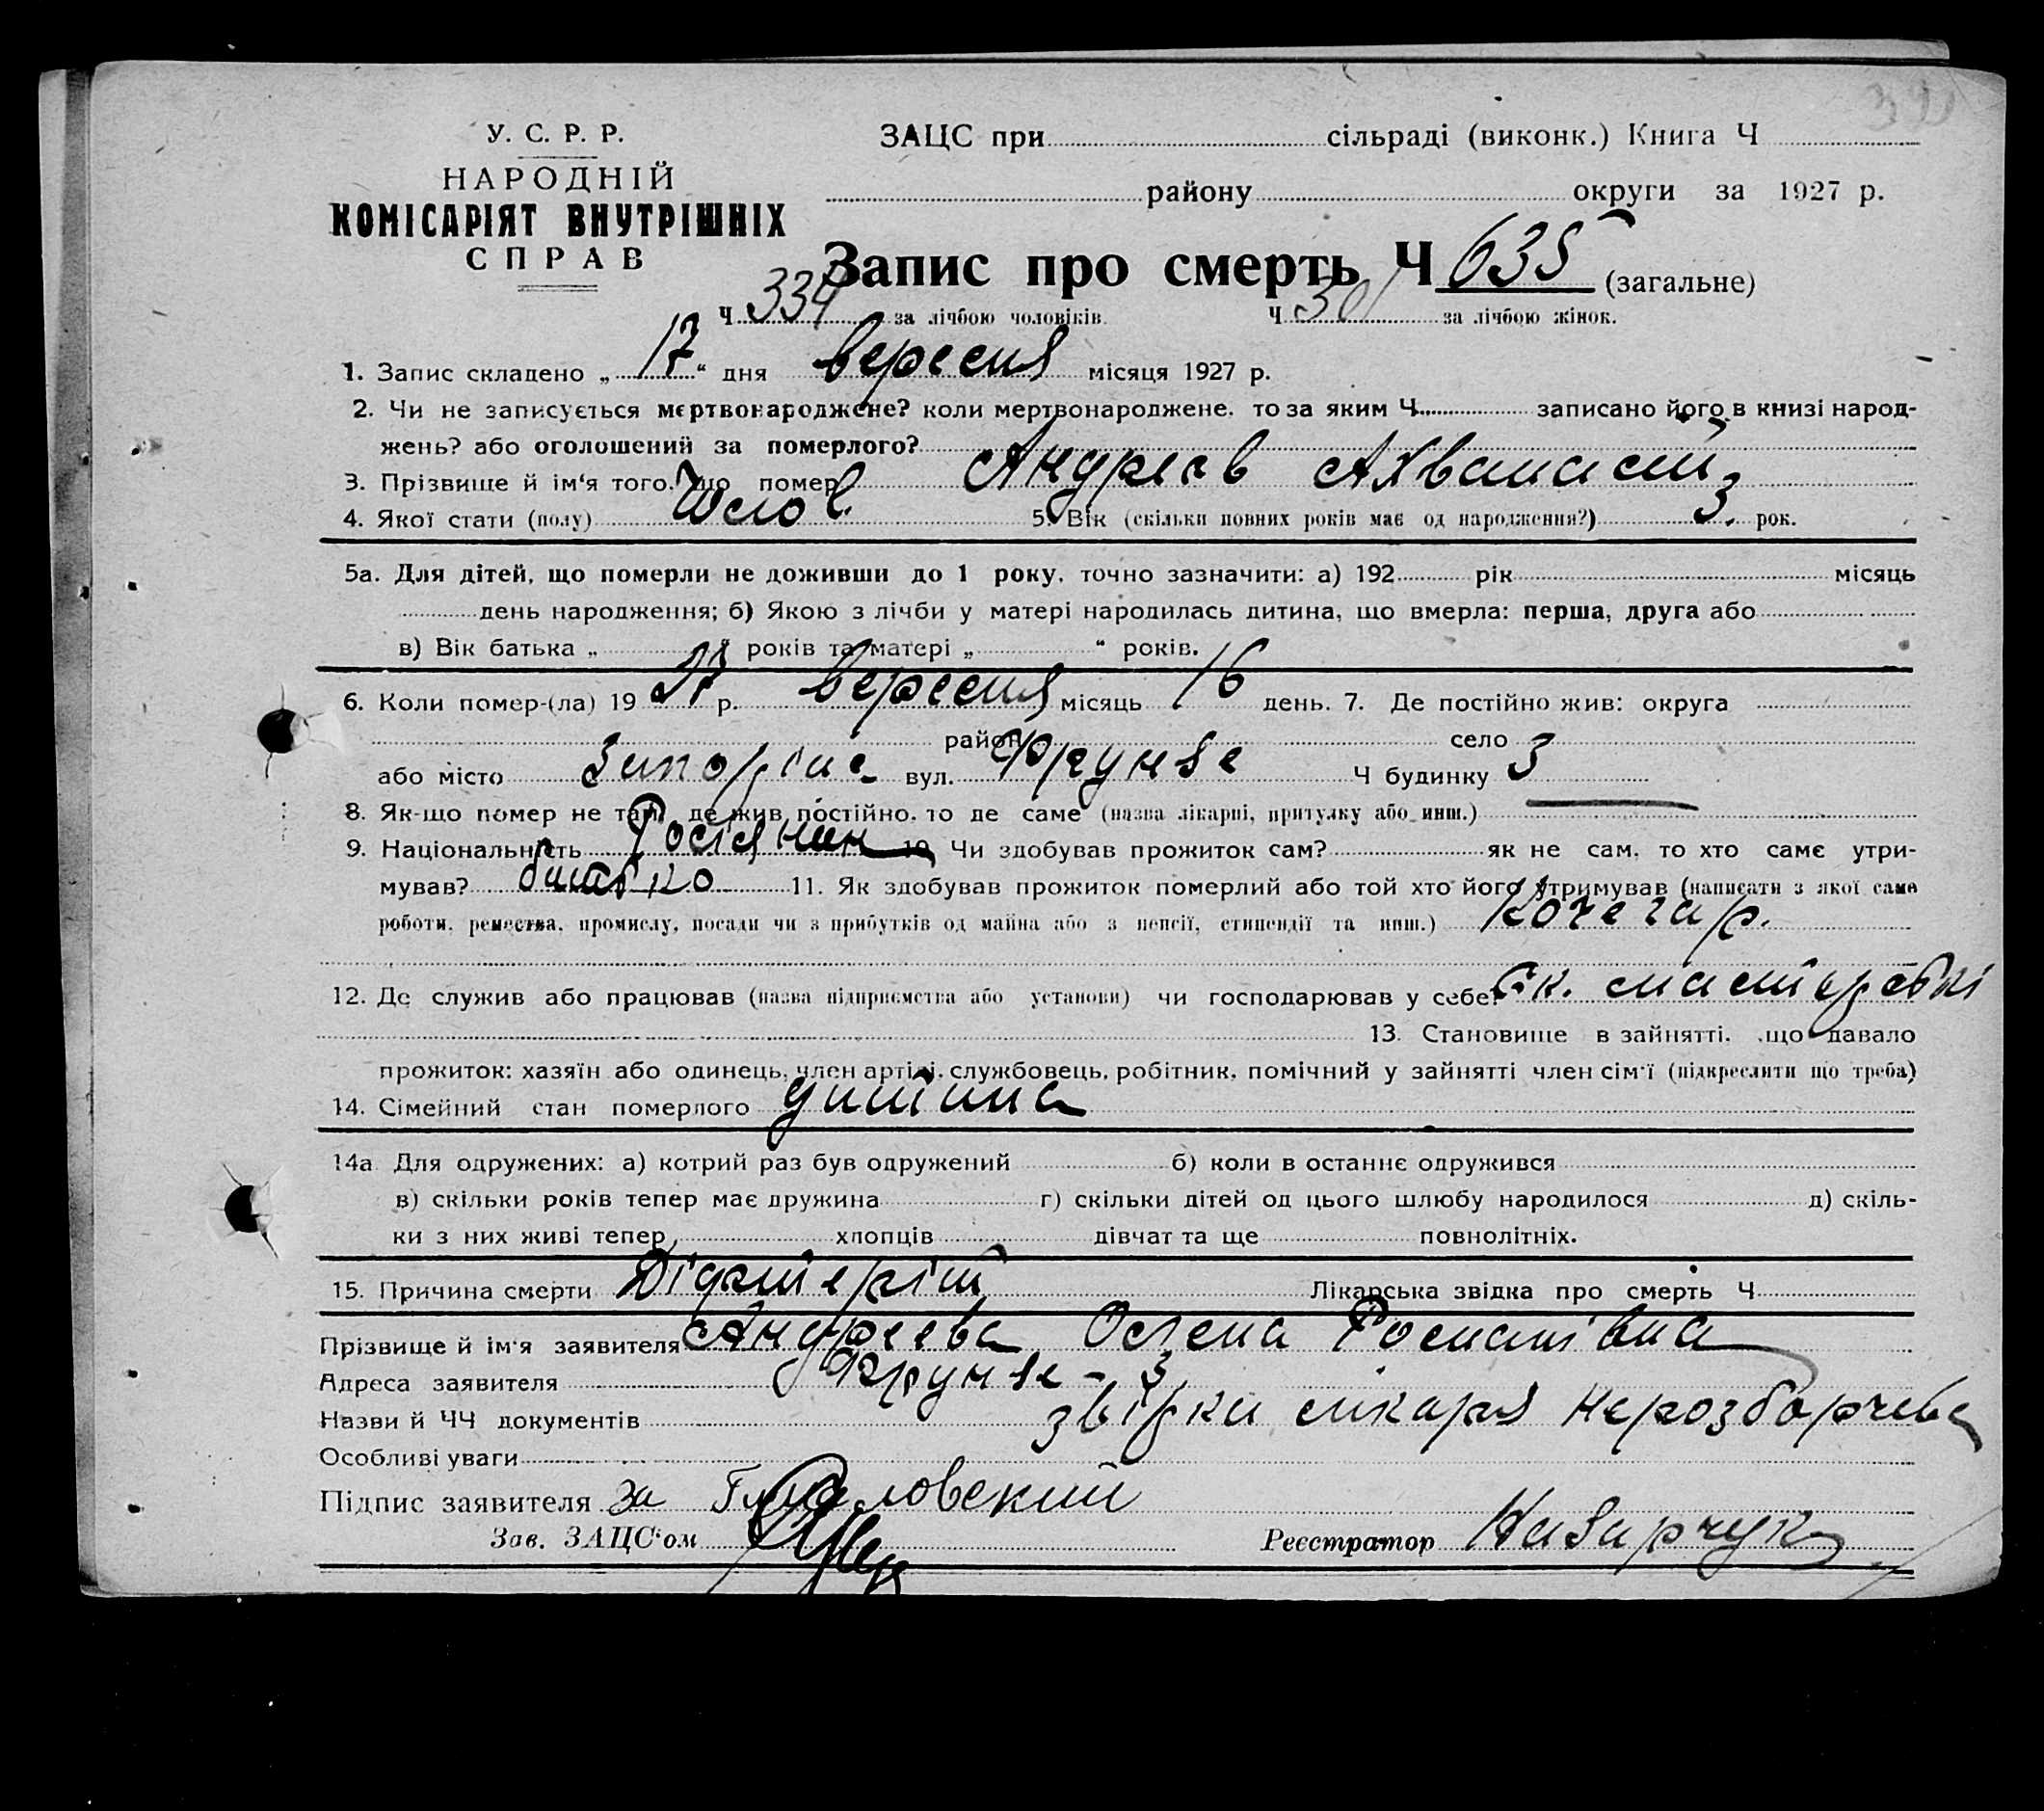 У. С. Р. Р.
НАРОДНІЙ
КОМІСАРІЯТ ВНУТРІШНІХ
СПРАВ
ЗАЦС при сільраді (виконк.) Книга Ч
району округи за 1927 р.
Запис про смерть Ч 635 (загальне)
Ч 334 за лічбою чоловіків Ч 301 за лічбою жінок.
1. Запис складено „ 17 “ дня вересня місяця 1927 р.
2. Чи не записується мертвонароджене? коли мертвонароджене, то за яким Ч записано його в книзі народ-
жень? або оголошений за померлого?
3. Прізвище й ім‘я того, що помер Андреєв
4. Якої стати (полу) 5. Вік (скільки повних років має од народження?) 3. рок.
5а. Для дітей, що померли не доживши до 1 року, точно зазначити: а) 192 рік місяць
день народження; б) Якою з лічби у матері народилась дитина, що вмерла: перша, друга або
в) Вік батька „ “ років та матері „ “ років.
6. Коли помер-(ла) 19 27 р. вересня місяць 16 день. 7. Де постійно жив: округа
район село
або місто Запоріжжє вул. Фрунзе Ч будинку 3
8. Як-що помер не там, де жив постійно, то де саме (назва лікарні, притулку або инш.)
9. Національність Росіянин 10. Чи здобував прожиток сам? як не сам, то хто саме утри-
мував? батько 11. Як здобував прожиток померлий або той хто його утримував (написати з якої саме
роботи, ремества, промислу, посади чи з прибутків од майна або з пенсії, стипендії та инш.) Кочегар.
12. Де служив або працював (назва підприємства або установи) чи господарював у себе? Єк. мастерські
13. Становище в зайнятті, що давало
прожиток: хазяїн або одинець, член артілі, службовець, робітник, помічний у зайнятті член сім‘ї (підкреслити що треба)
14. Сімейний стан померлого дитина
14а. Для одружених: а) котрий раз був одружений б) коли в останнє одружився
в) скільки років тепер має дружина г) скільки дітей од цього шлюбу народилося д) скіль-
ки з них живі тепер хлопців дівчат та ще повнолітніх.
15. Причина смерти Діфтеріт Лікарська звідка про смерть Ч
Прізвище й ім‘я заявителя Андреєва Олена Романівна
Адреса заявителя Фрунзе - 3
Назви й ЧЧ документів звірки лікаря нерозборчева
Особливі уваги
Підпис заявителя За
Зав. ЗАЦС‘ом Реєстратор Назарчук